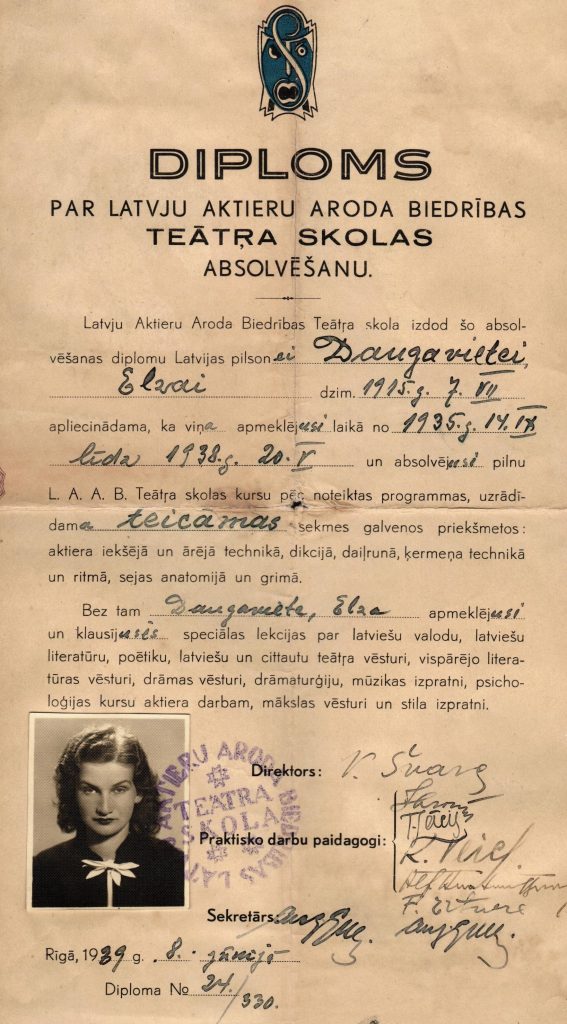 DIPLOMS
PAR LATVJU AKTIERU ARODA BIEDRĪBAS
TEĀTŖA SKOLAS
ABSOLVĒŠANU.
Latvju Aktieru Aroda Biedrības Teātŗa skola izdod šo absol-
vēšanas diplomu Latvijas pilsonei Daugavietei,
Elzai dzim. 1915.g. 7. VII
apliecinādama, ka viņa apmeklējusi laikā no 1935.g. 14.IX
līdz 1938.g. 20.V un absolvējusi pilnu
L. A. A. B. Teātŗa skolas kursu pēc noteiktas programmas, uzrādī-
dama teicāmas sekmes galvenos priekšmetos:
aktiera iekšējā un ārējā technikā, dikcijā, daiļrunā, ķermeņa technikā
un ritmā, sejas anatomijā un grimā.
Bez tam Daugaviete, Elza apmeklējusi
un klausījusēs speciālas lekcijas par latviešu valodu, latviešu
literatūru, poētiku, latviešu un cittautu teātŗa vēsturi, vispārējo litera-
tūras vēsturi, drāmas vēsturi, drāmaturģiju, mūzikas izpratni, psicho-
loģijas kursu aktiera darbam, mākslas vēsturi un stila izpratni.
AKTIERU ARODA BIEDRĪBAS
TEĀTRA
SKOLA
Direktors:
Praktisko darbu paidagogi:
Sekretārs:
Rīgā, 1939 g. 8. jūnijā
Diploma No 24/330.